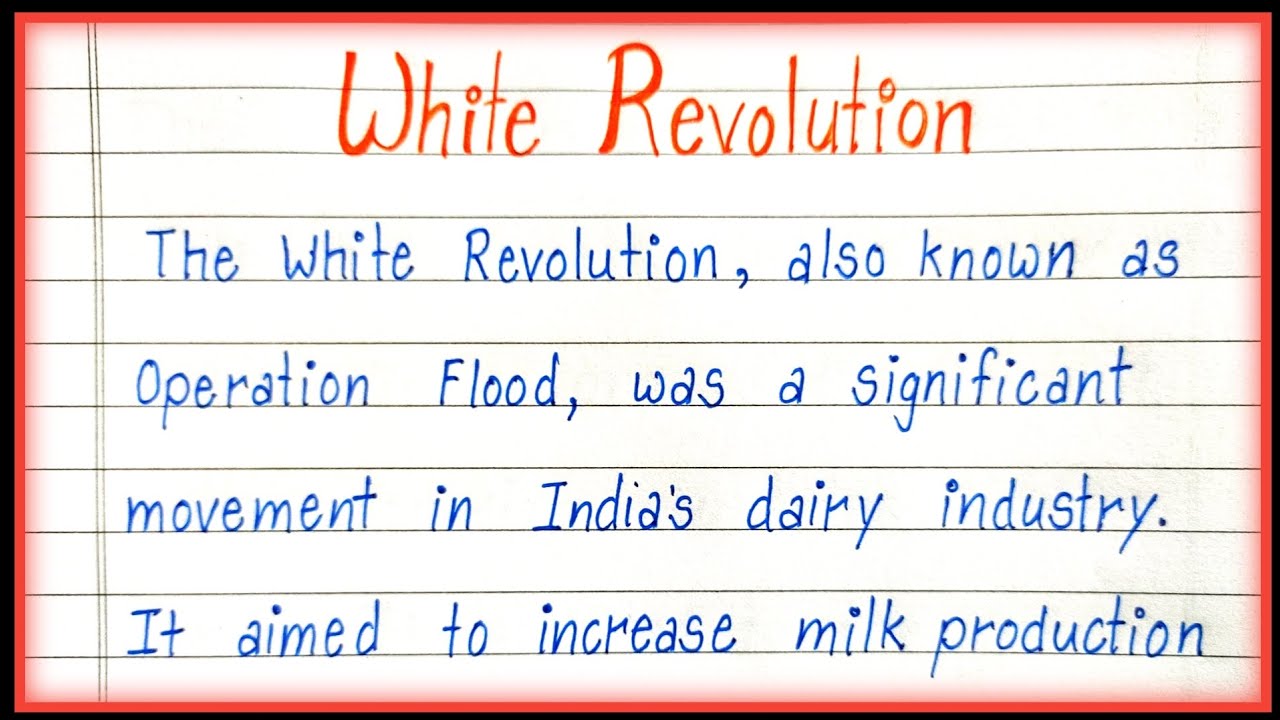 White Revolution
The White Revolution, also known as
Operation Flood, was a significant
movement in India's dairy industry.
It aimed to increase milk production